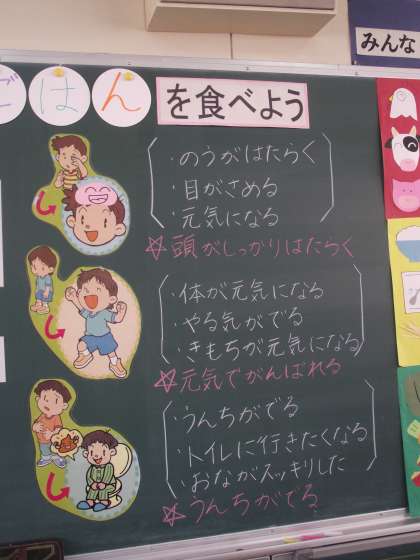 ごはん
を食べよう
みんな
・のうがはたらく
・目がさめる
・元気になる
☆頭がしっかりはたらく
・体が元気になる
・やる気がでる
・きもちが元気になる
☆元気でがんばれる
・うんちがでる
・トイレに行きたくなる
・おながスッキリした
☆うんちがでる